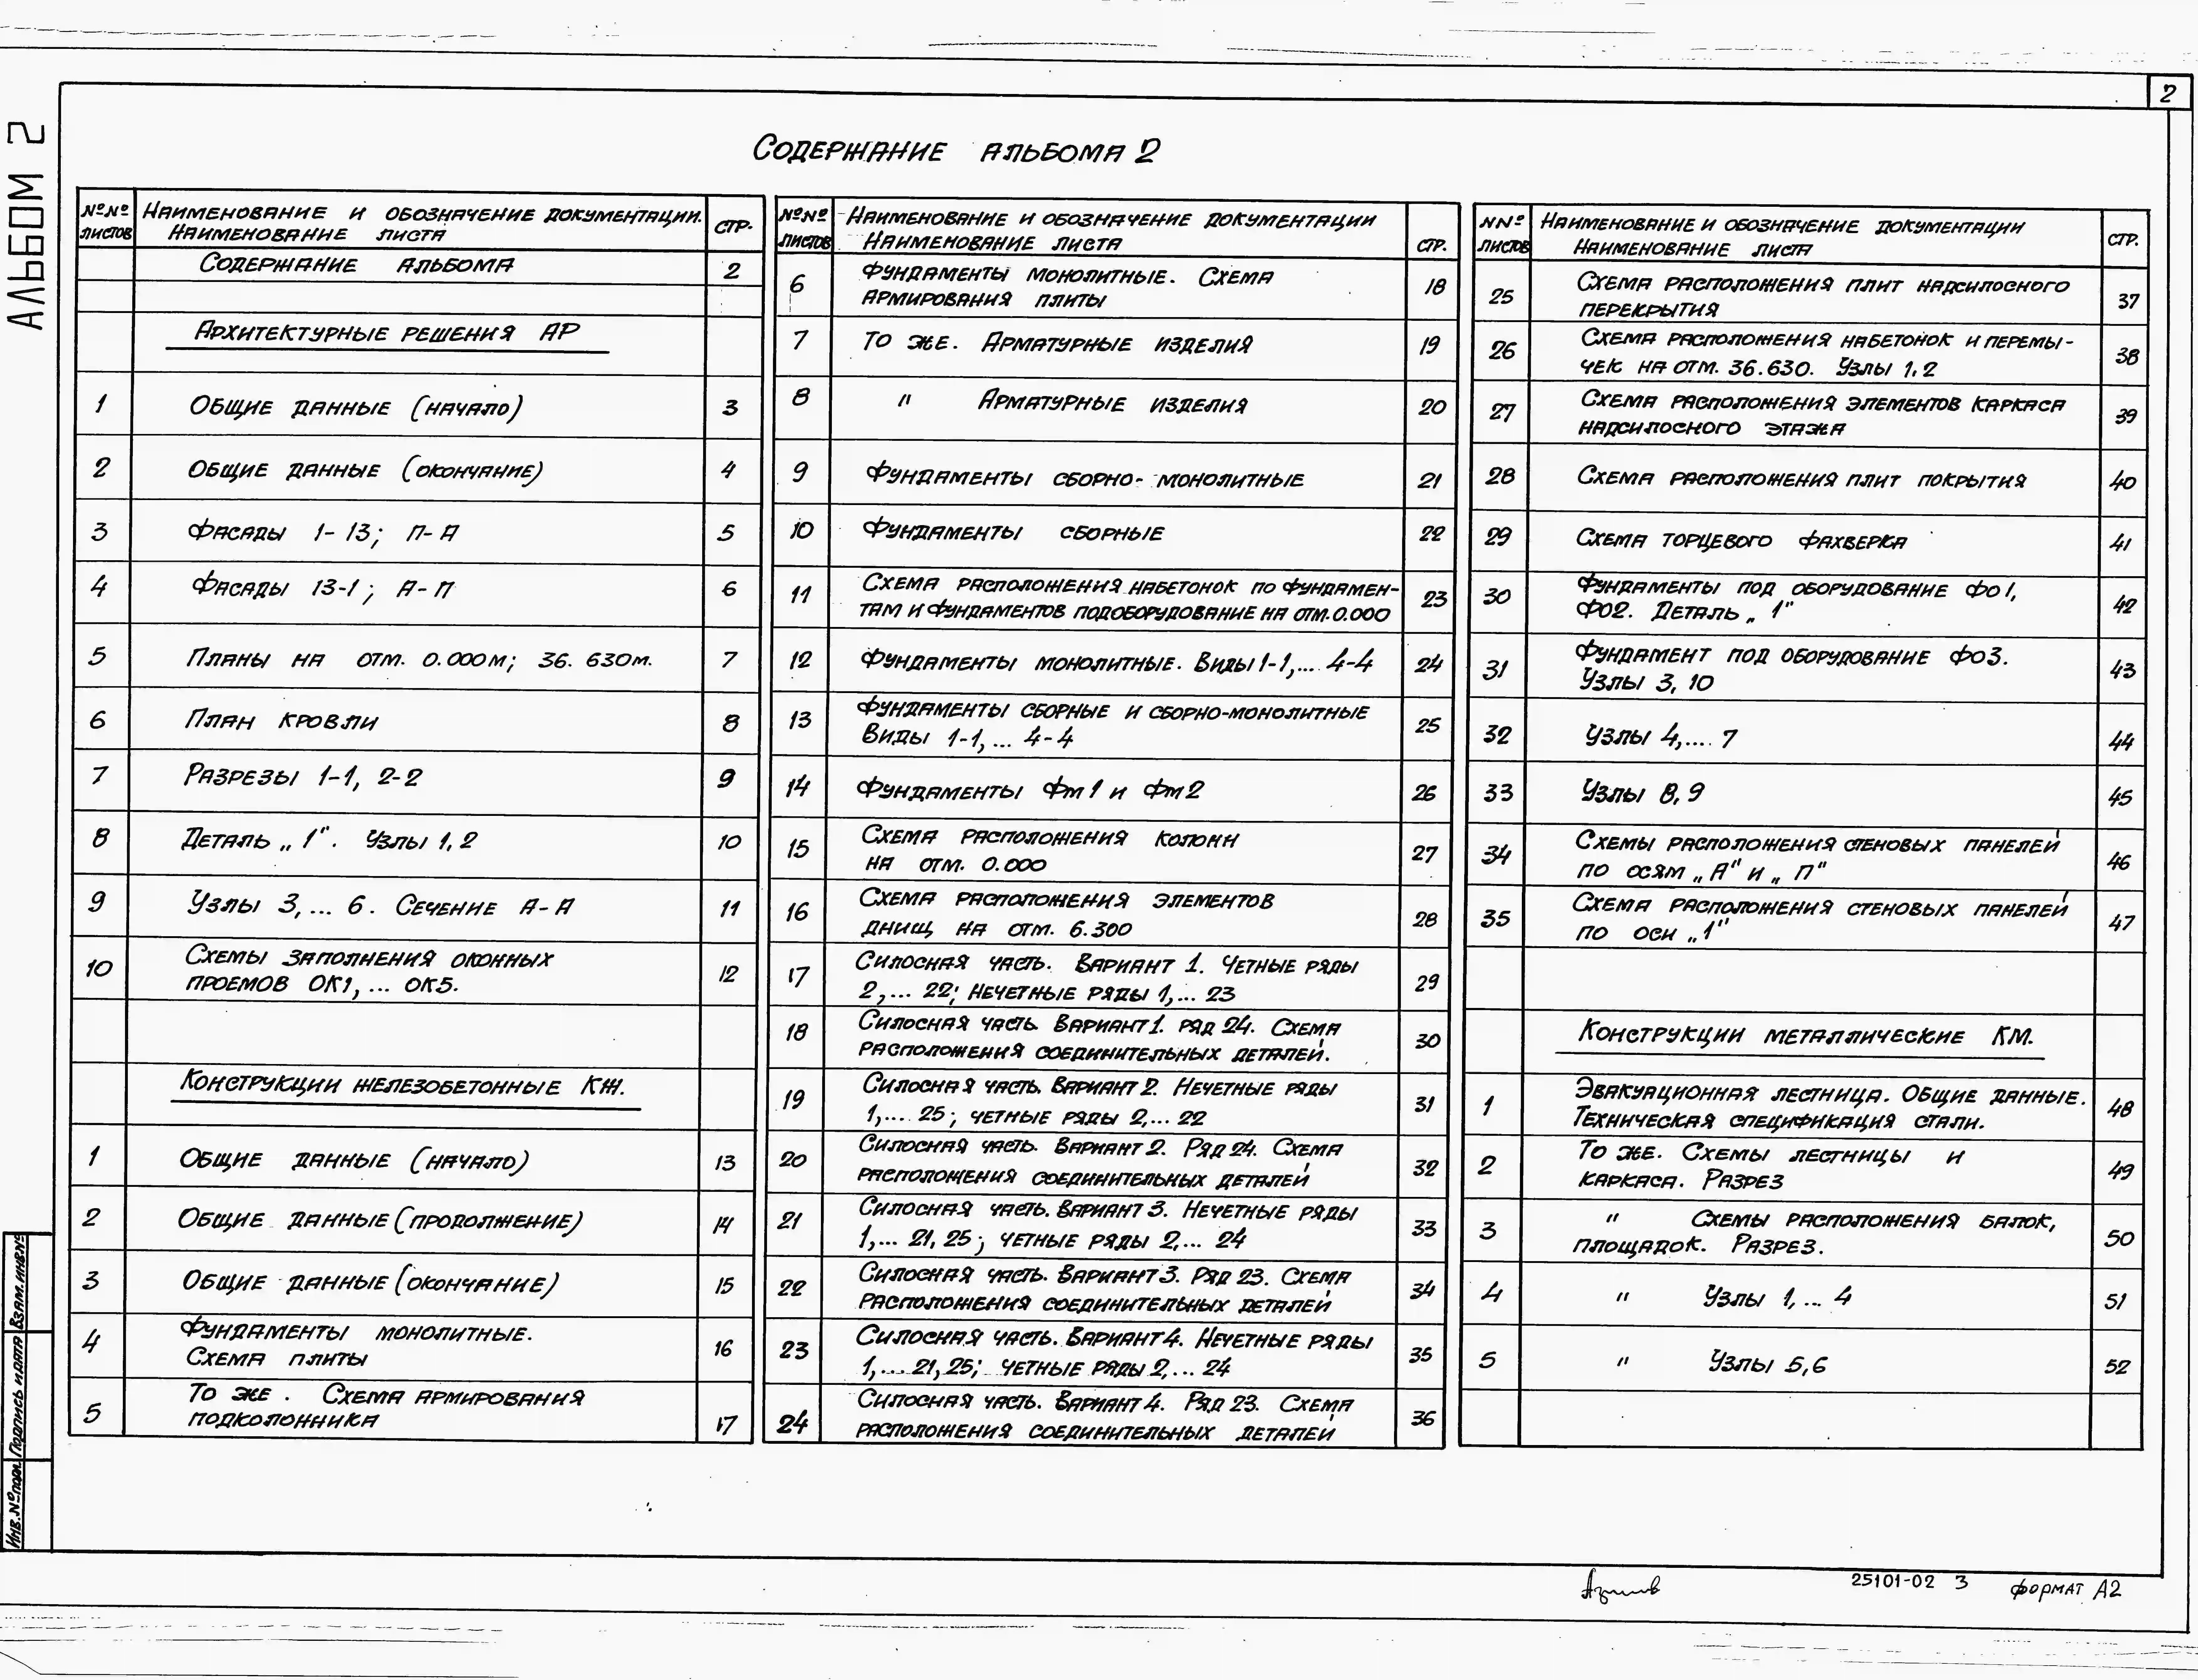 2
Альбом 2
Содержание альбома 2
№№ листов
Наименование и обозначение документации.
Наименование листа
стр.
Содержание альбома 2
Архитектурные решения АР
1 Общие данные (начало) 3
2 Общие данные (окончание) 4
3 Фасады 1-13; П-А 5
4 Фасады 13-1; А-П 6
5 Планы на отм. 0.000м; 36.630м. 7
6 План кровли 8
7 Разрезы 1-1, 2-2 9
8 Деталь „1". Узлы 1,2 10
9 Узлы 3,... 6. Сечение А-А 11
10 Схемы заполнения оконных
проемов ОК1,... ОК5. 12
Конструкции железобетонные КЖ.
1 Общие данные (начало) 13
2 Общие данные (продолжение) 14
3 Общие данные (окончание) 15
4 Фундаменты монолитные.
Схема плиты 16
5 То же. Схема армирования
подколонника 17
№№ листов
Наименование и обозначение документации
Наименование листа
стр.
6 Фундаменты монолитные. Схема
армирования плиты 18
7 То же. Арматурные изделия 19
8 " Арматурные изделия 20
9 Фундаменты сборно-монолитные 21
10 Фундаменты сборные 22
11 Схема расположения набетонок по фундамен-
там и фундаментов под оборудование на отм. 0.000 23
12 Фундаменты монолитные. Виды 1-1,... 4-4 24
13 Фундаменты сборные и сборно-монолитные
Виды 1-1,... 4-4 25
14 Фундаменты Фм1 и Фм2 26
15 Схема расположения колонн
на отм. 0.000 27
16 Схема расположения элементов
днищ на отм. 6.300 28
17 Силосная часть. Вариант 1. Четные ряды
2,... 22; Нечетные ряды 1,... 23 29
18 Силосная часть. Вариант 1. ряд 24. Схема
расположения соединительных деталей. 30
19 Силосная часть. Вариант 2. Нечетные ряды
1,... 25; четные ряды 2,... 22 31
20 Силосная часть. Вариант 2. Ряд 24. Схема
расположения соединительных деталей 32
21 Силосная часть. Вариант 3. Нечетные ряды
1,... 21, 25; четные ряды 2,... 24 33
22 Силосная часть. Вариант 3. Ряд 23. Схема
расположения соединительных деталей 34
23 Силосная часть. Вариант 4. Нечетные ряды
1,... 21, 25; четные ряды 2,... 24 35
24 Силосная часть. Вариант 4. Ряд 23. Схема
расположения соединительных деталей 36
№№ листов
Наименование и обозначение документации
Наименование листа
стр.
25 Схема расположения плит надсилосного
перекрытия 37
26 Схема расположения набетонок и перемы-
чек на отм. 36.630. Узлы 1,2 38
27 Схема расположения элементов каркаса
надсилосного этажа 39
28 Схема расположения плит покрытия 40
29 Схема торцевого фахверка 41
30 Фундаменты под оборудование Фо1,
Фо2. Деталь „1" 42
31 Фундамент под оборудование Фо3.
Узлы 3, 10 43
32 Узлы 4,... 7 44
33 Узлы 8, 9 45
34 Схемы расположения стеновых панелей
по осям „А" и „П" 46
35 Схема расположения стеновых панелей
по оси „1" 47
Конструкции металлические КМ.
1 Эвакуационная лестница. Общие данные.
Техническая спецификация стали. 48
2 То же. Схемы лестницы и
каркаса. Разрез 49
3 " Схемы расположения балок,
площадок. Разрез. 50
4 " Узлы 1,... 4 51
5 " Узлы 5,6 52
Взам.инв.№
Подпись и дата
Инв.№подл.
25101-02 3 формат А2